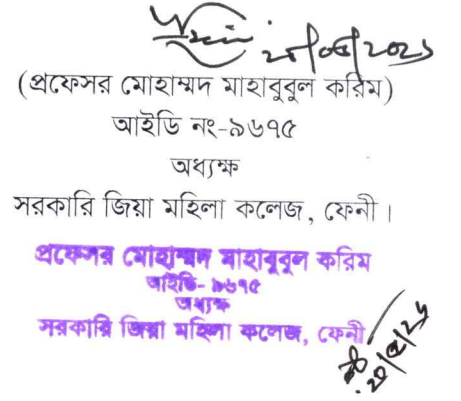 ২৮/০৫/২০২৬
(প্রফেসর মোহাম্মদ মাহাবুবুল করিম)
আইডি নং-৯৬৭৫
অধ্যক্ষ
সরকারি জিয়া মহিলা কলেজ, ফেনী।
প্রফেসর মোহাম্মদ মাহাবুবুল করিম
আইডি- ৯৬৭৫
অধ্যক্ষ
সরকারি জিয়া মহিলা কলেজ, ফেনী